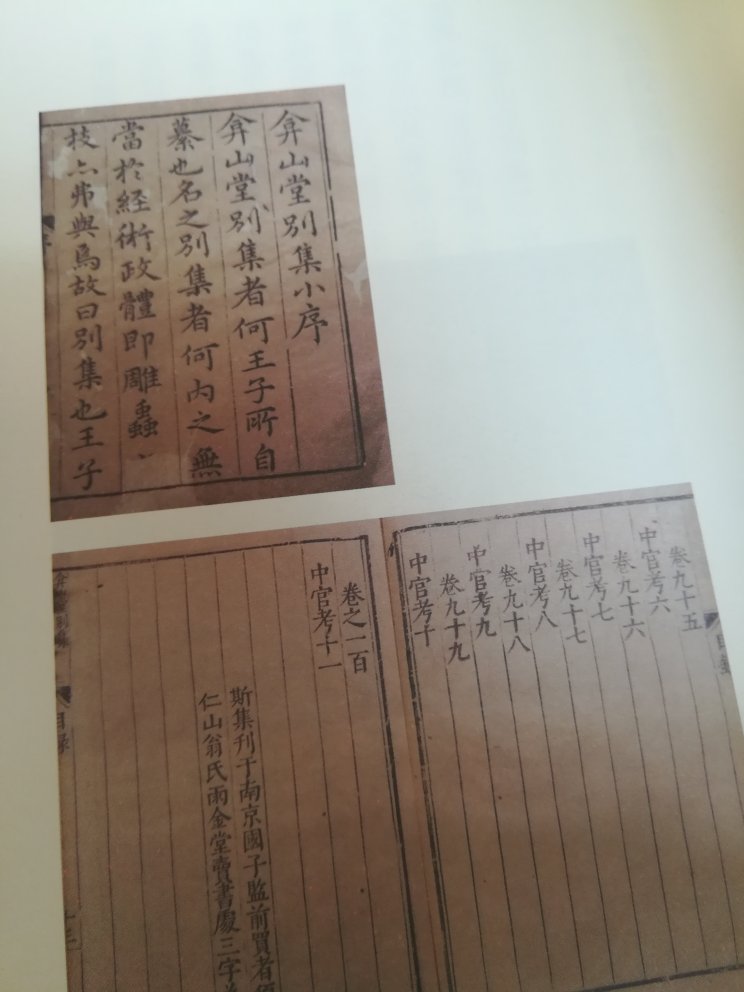 弇山堂別集小序
弇山堂別集者何王子所自
纂也名之別集者何內之無
當於経術政體即雕蟲
技亦弗與焉故曰別集也王子
卷九十五
中官考六
卷九十六
中官考七
卷九十七
中官考八
卷九十八
中官考九
卷九十九
中官考十
卷之一百
中官考十一
斯集刊于南京國子監前買者須
仁山翁氏雨金堂賣書處三字
目録